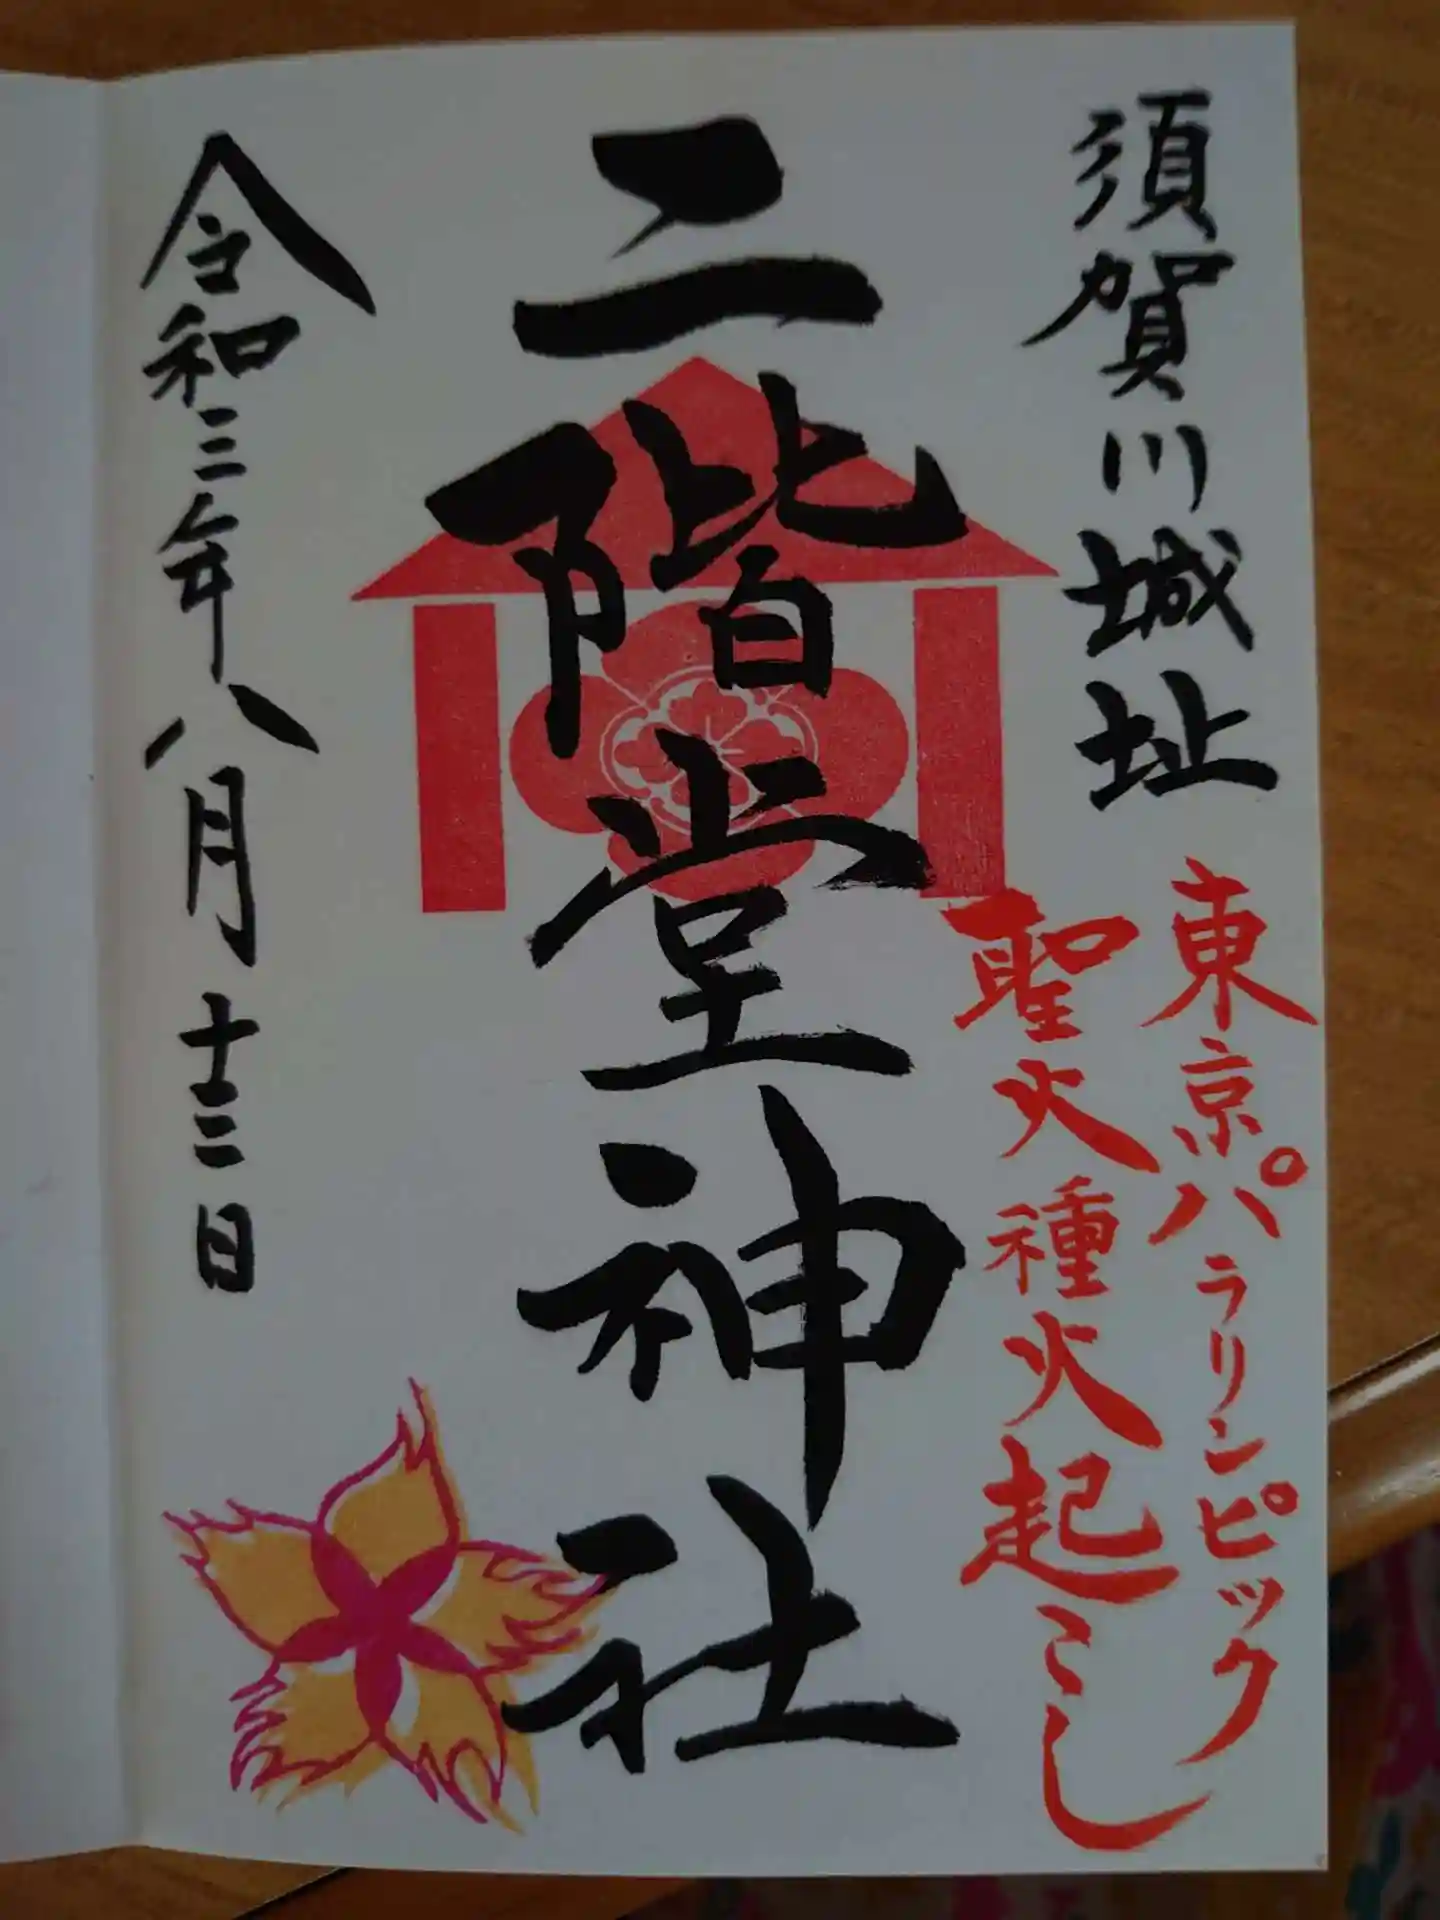 須賀川城址
東京パラリンピック
聖火種火起こし
二階堂神社
令和三年八月十三日